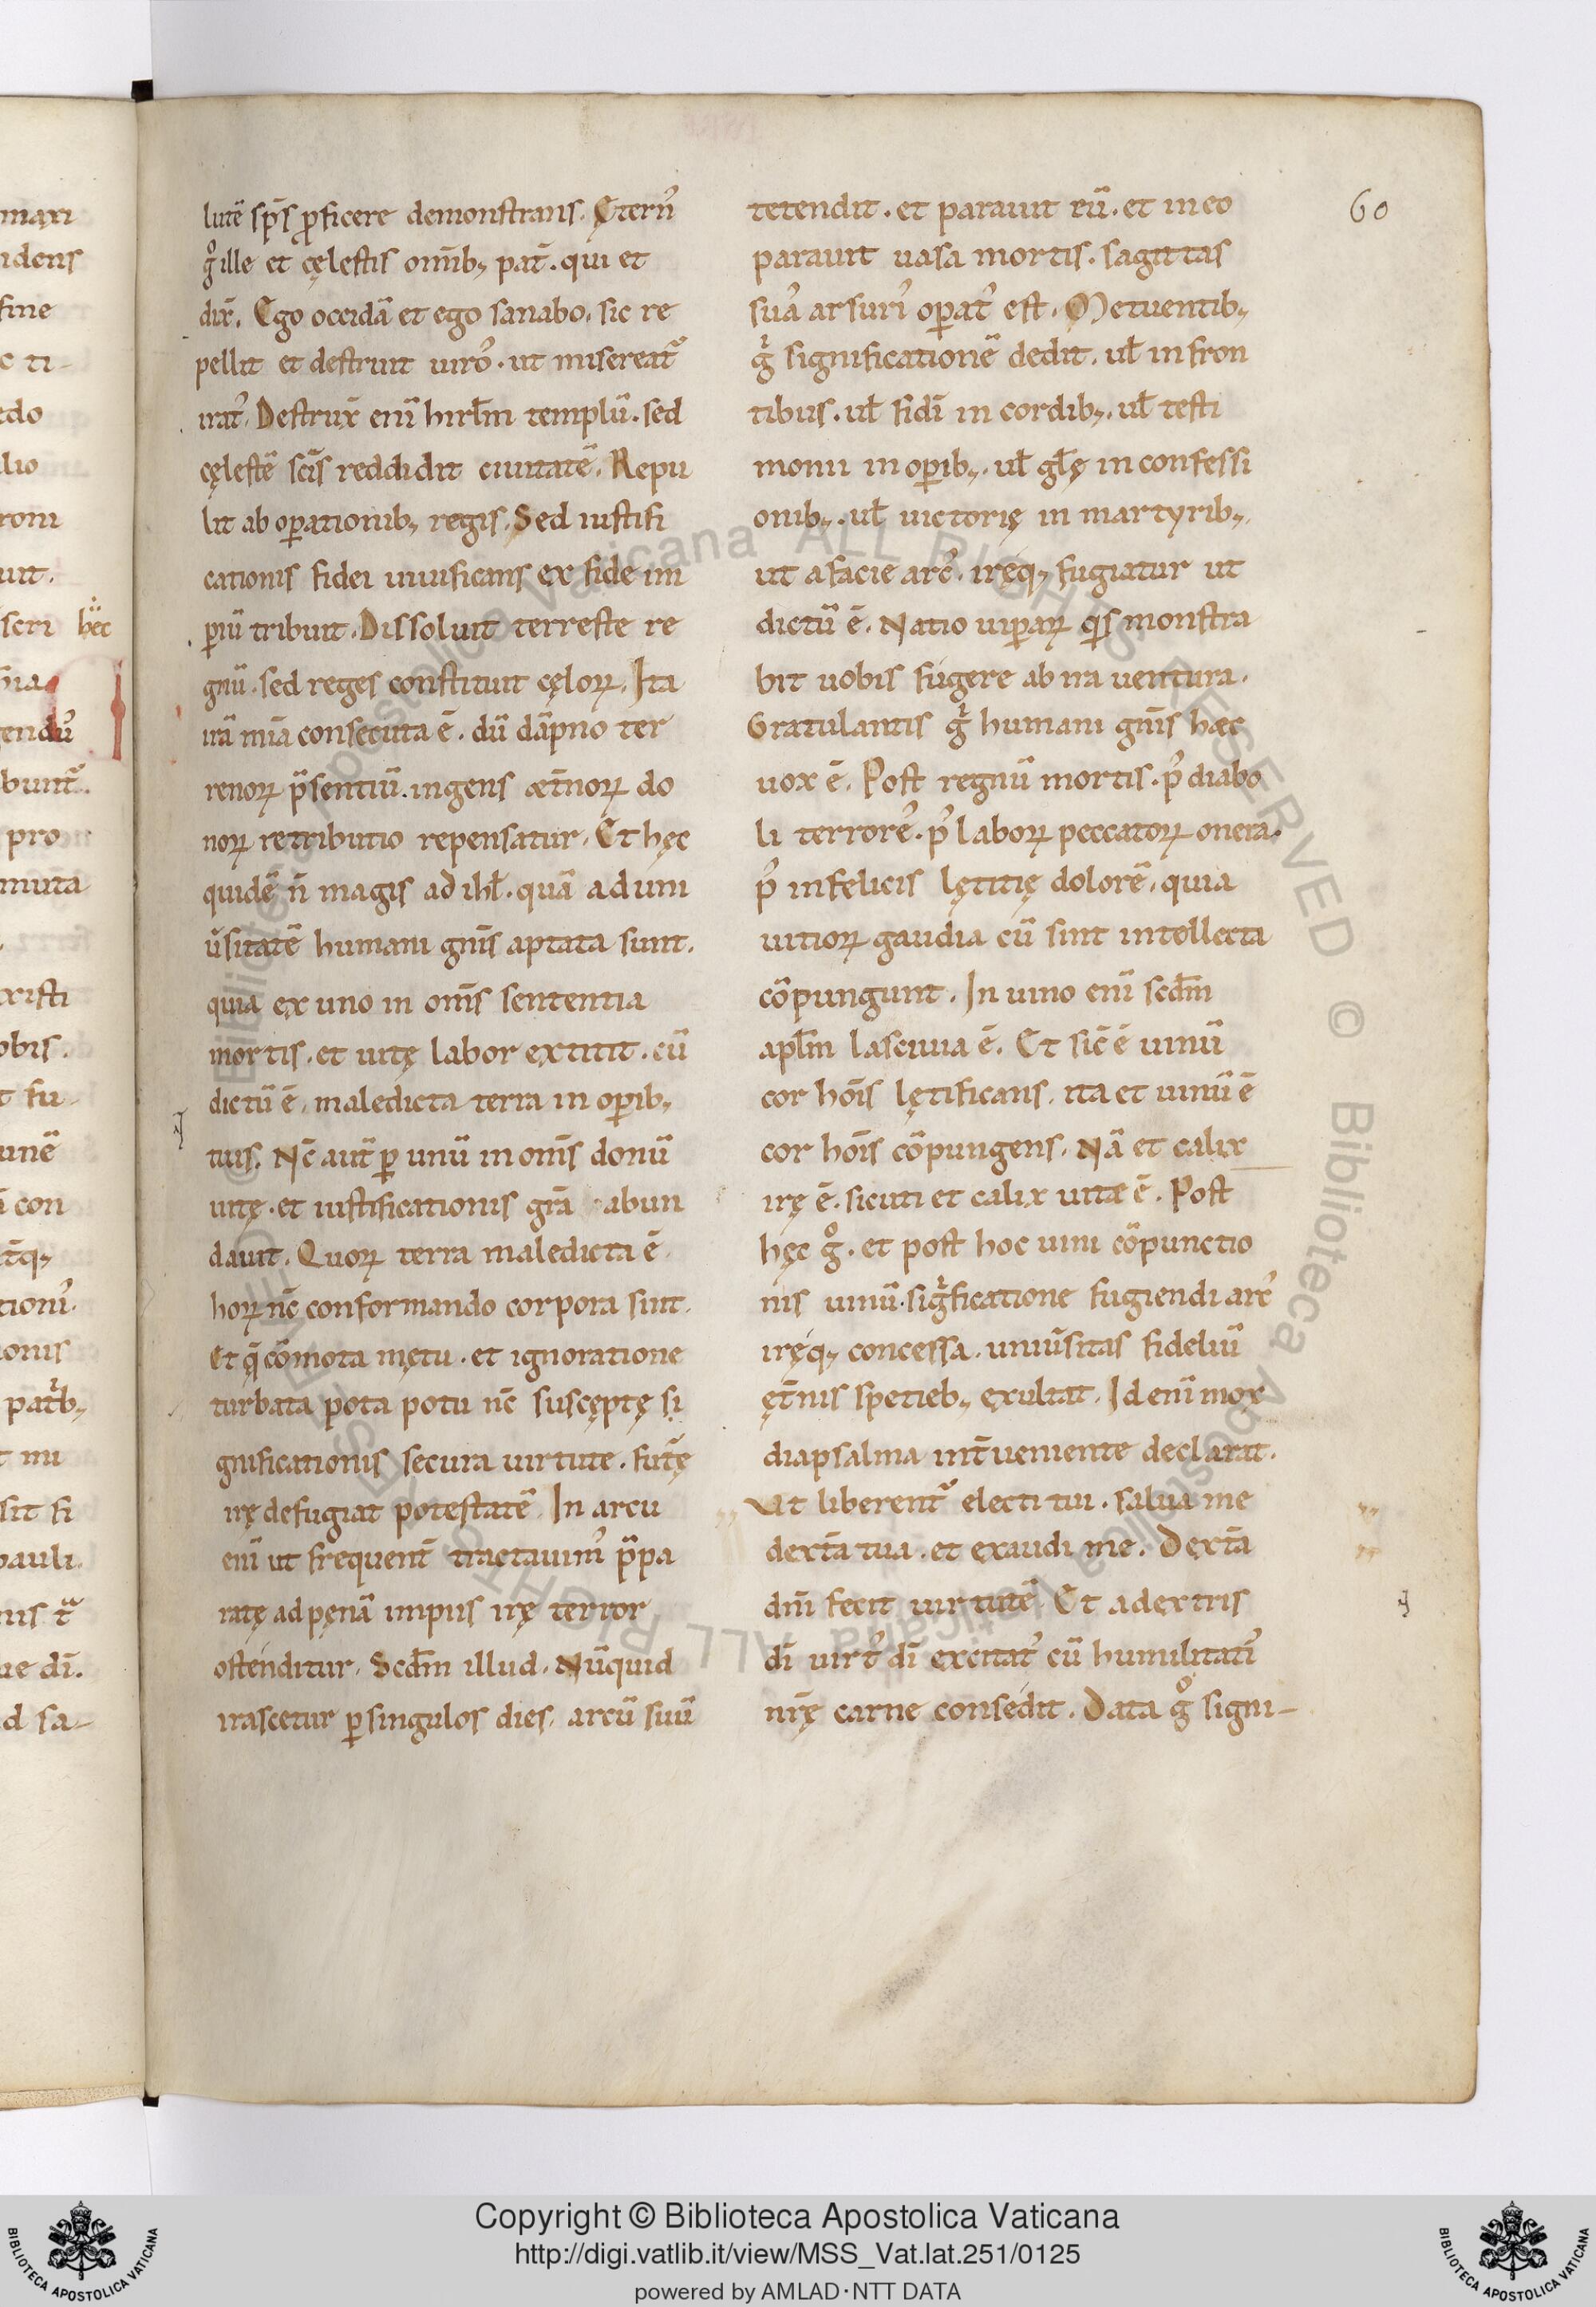 maxi
idens
fine
c ti-
edo
lio
roni
uit.
scri hęc
ńia
endũ
bunt᷑.
pro
muta
xisti
obis.
t fu-
unẽ
ĩ con
t̄q;
tioni᷒.
onis
pat̃b;
t mi
sit fi
pauli.
nis t᷑
ue dī.
d sa-
lutẽ sp̄s ꝓficere demonstrans. Ęterń
gͦ ille et cęlestis omīb; pat̄. qui et
dix̄. Ego occidã et ego sanabo. sic re
pellit et destruit uiro᷒. ut misereat᷑
irat᷒. Destrux̄ enĩ hirl̄m templũ. sed
cęlestẽ sc̄is reddidit ciuitatẽ. Repu
lit ab oꝑationib; regis. Sed iustifi
cationis fidei uiuificans ex fide im
piũ tribuit. Dissoluit terreste re
gnũ. sed reges constituit cęloꝝ. Ita
irã mīa consecuta ē. dũ dãpno ter
renoꝝ p̃sentiũ. ingens æt̄noꝝ do
noꝝ retributio repensatur. Et hęc
quidẽ n̄ magis ad ihl̄. quã ad uni
ũsitatẽ humani gn̄is aptata sunt.
quia ex uno in om̄s sententia
mortis. et uitę labor extitit. cũ
dictũ ē. maledicta terra in oꝑib;
tuis. Nc̄ aut̃ ꝑ unũ in om̄s donũ
uitę. et iustificationis gr̄a abun
dauit. Quoꝝ terra maledicta ē.
hoꝝ nc̄ conformando corpora sint.
Et q̃ cõmota mętu. et ignoratione
turbata pota potu nc̄ suscęptę si
gnificationis secura uirtute. fut̃ę
irę defugiat potestatẽ. In arcu
enĩ ut frequent̄ tractauim᷒ p̃pa
ratę ad pęnã impiis irę terror
ostenditur. Scd̄m illud. Nũquid
irascetur ꝑ singulos dies. arcũ suũ
60
tetendit. et parauit eũ. et in eo
parauit uasa mortis. sagittas
sua᷒ arsuri᷒ oꝑat᷒ est. Metuentib;
gͥ significationẽ dedit. ul̄ in fron
tibus. ul̄ fidī in cordib;. ul̄ testi
monii in oꝑib;. ul̄ gl̄ę in confessi
onib;. ul̄ uictorię in martyrib;.
ut a facie arc᷒. iręq; fugiatur ut
dictũ ē. Natio uiꝑaꝝ qͥs monstra
bit uobis fugere ab ira uentura.
Gratulantis gͥ humani gn̄is hæc
uox ē. Post regnũ mortis. p᷒ diabo
li terrore᷒. p᷒ laboꝝ peccatoꝝ onera.
p᷒ infelicis lętitię dolorẽ. quia
uitioꝝ gaudia cũ sint intellecta
cõpungunt. In uino enĩ scd̄m
apl̄m lasciuia ē. Et sic̄ ē uinũ
cor hōis lętificans. ita et uinũ ē
cor hōis cõpungens. Nã et calix
irę ē. sicuti et calix uitæ ē. Post
hęc gͦ. et post hoc uini cõpunctio
nis uinũ. sigͥficatione fugiendi arc᷒
iręq; concessa. uniũsitas fideliũ
ęt̄nis spetieb; exultat. Id enĩ mox
diapsalma int̄ueniente declarat.
Ut liberent᷑ electi tui. salua me
dext̃a tua. et exaudi me. Dext̃a
dn̄i fecit uirtutẽ. Et a dextris
dī uirt᷒ dī excitat᷒ cũ humilitati᷒
nr̄ę carne consedit. Data gͦ signi-
Copyright © Biblioteca Apostolica Vaticana
http://digi.vatlib.it/view/MSS_Vat.lat.251/0125
powered by AMLAD·NTT DATA